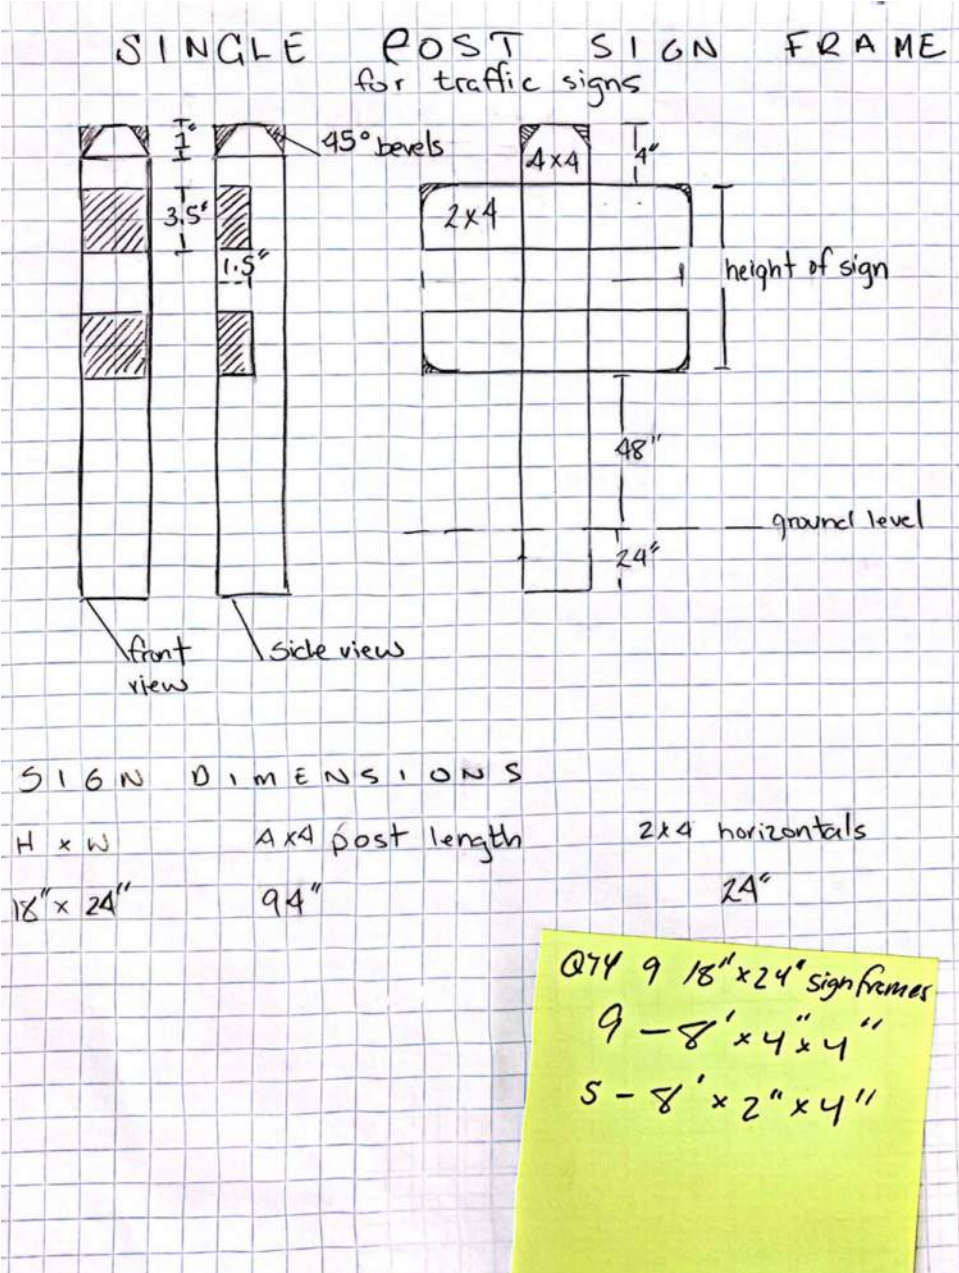 SINGLE POST SIGN FRAME
for traffic signs
1"
45° bevels
4x4
4"
3.5"
2x4
1.5"
height of sign
48"
ground level
24"
front
view
side view
SIGN DIMENSIONS
H x W
4x4 post length
2x4 horizontals
18" x 24"
94"
24"
QTY 9 18"x24" sign frames
9 - 8' x 4" x 4"
5 - 8' x 2" x 4"